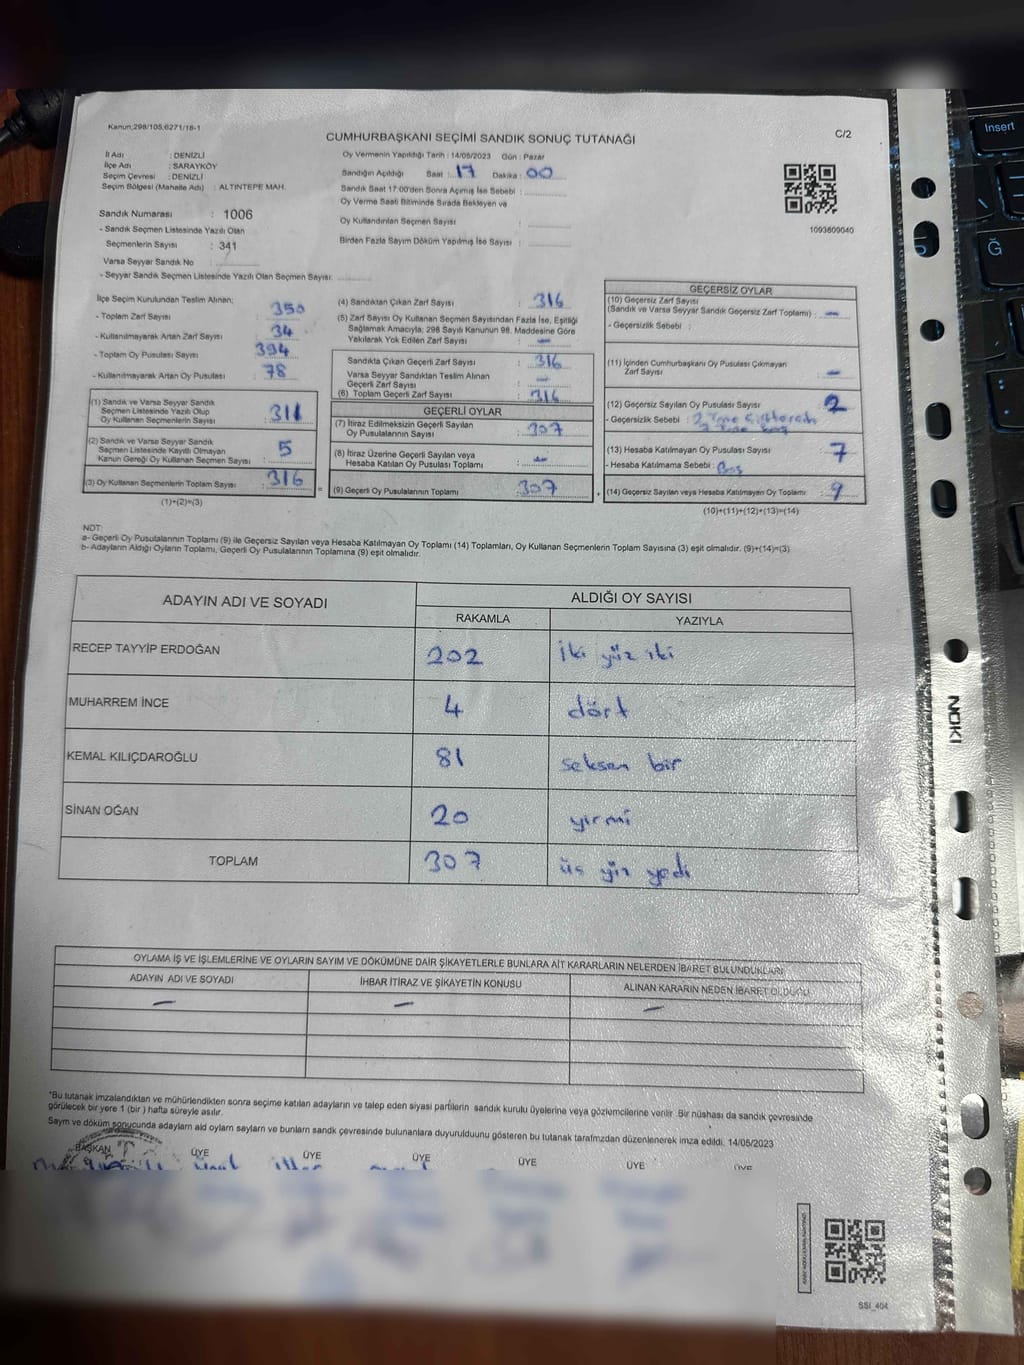 Kanun;298/105;6271/18-1
C/2
CUMHURBAŞKANI SEÇİMİ SANDIK SONUÇ TUTANAĞI
İl Adı : DENİZLİ
İlçe Adı : SARAYKÖY
Seçim Çevresi : DENİZLİ
Seçim Bölgesi (Mahalle Adı) : ALTINTEPE MAH.
Sandık Numarası : 1006
- Sandık Seçmen Listesinde Yazılı Olan
Seçmenlerin Sayısı : 341
Varsa Seyyar Sandık No :
- Seyyar Sandık Seçmen Listesinde Yazılı Olan Seçmen Sayısı:
Oy Vermenin Yapıldığı Tarih : 14/05/2023 Gün : Pazar
Sandığın Açıldığı Saat : 17 Dakika : 00
Sandık Saat 17:00'den Sonra Açılmış İse Sebebi :
Oy Verme Saati Bitiminde Sırada Bekleyen ve
Oy Kullandırılan Seçmen Sayısı :
Birden Fazla Sayım Döküm Yapılmış İse Sayısı :
1093809040
İlçe Seçim Kurulundan Teslim Alınan;
- Toplam Zarf Sayısı : 350
- Kullanılmayarak Artan Zarf Sayısı : 34
- Toplam Oy Pusulası Sayısı : 394
- Kullanılmayarak Artan Oy Pusulası : 78
(1) Sandık ve Varsa Seyyar Sandık
Seçmen Listesinde Yazılı Olup
Oy Kullanan Seçmenlerin Sayısı : 311
(2) Sandık ve Varsa Seyyar Sandık
Seçmen Listesinde Kayıtlı Olmayan
Kanun Gereği Oy Kullanan Seçmen Sayısı : 5
(3) Oy Kullanan Seçmenlerin Toplam Sayısı : 316
(1)+(2)=(3)
(4) Sandıktan Çıkan Zarf Sayısı : 316
(5) Zarf Sayısı Oy Kullanan Seçmen Sayısından Fazla İse, Eşitliği
Sağlamak Amacıyla; 298 Sayılı Kanunun 98. Maddesine Göre
Yakılarak Yok Edilen Zarf Sayısı : -
Sandıkta Çıkan Geçerli Zarf Sayısı : 316
Varsa Seyyar Sandıktan Teslim Alınan
Geçerli Zarf Sayısı : -
(6) Toplam Geçerli Zarf Sayısı : 316
GEÇERLİ OYLAR
(7) İtiraz Edilmeksizin Geçerli Sayılan
Oy Pusulalarının Sayısı : 307
(8) İtiraz Üzerine Geçerli Sayılan veya
Hesaba Katılan Oy Pusulası Toplamı : -
(9) Geçerli Oy Pusulalarının Toplamı : 307
GEÇERSİZ OYLAR
(10) Geçersiz Zarf Sayısı
(Sandık ve Varsa Seyyar Sandık Geçersiz Zarf Toplamı) : -
- Geçersizlik Sebebi :
(11) İçinden Cumhurbaşkanı Oy Pusulası Çıkmayan
Zarf Sayısı : -
(12) Geçersiz Sayılan Oy Pusulası Sayısı : 2
- Geçersizlik Sebebi :
(13) Hesaba Katılmayan Oy Pusulası Sayısı : 7
- Hesaba Katılmama Sebebi : Boş
(14) Geçersiz Sayılan veya Hesaba Katılmayan Oy Toplamı : 9
(10)+(11)+(12)+(13)=(14)
NOT:
a- Geçerli Oy Pusulalarının Toplamı (9) ile Geçersiz Sayılan veya Hesaba Katılmayan Oy Toplamı (14) Toplamları, Oy Kullanan Seçmenlerin Toplam Sayısına (3) eşit olmalıdır. (9)+(14)=(3)
b- Adayların Aldığı Oyların Toplamı, Geçerli Oy Pusulalarının Toplamına (9) eşit olmalıdır.
ADAYIN ADI VE SOYADI ALDIĞI OY SAYISI
RAKAMLA YAZIYLA
RECEP TAYYİP ERDOĞAN 202 iki yüz iki
MUHARREM İNCE 4 dört
KEMAL KILIÇDAROĞLU 81 seksen bir
SİNAN OĞAN 20 yirmi
TOPLAM 307 üs yüz yedi
OYLAMA İŞ VE İŞLEMLERİNE VE OYLARIN SAYIM VE DÖKÜMÜNE DAİR ŞİKAYETLERLE BUNLARA AİT KARARLARIN NELERDEN İBARET BULUNDUKLARI
ADAYIN ADI VE SOYADI İHBAR İTİRAZ VE ŞİKAYETİN KONUSU ALINAN KARARIN NEDEN İBARET OLDUĞU
- - -
*Bu tutanak imzalandıktan ve mühürlendikten sonra seçime katılan adayların ve talep eden siyasi partilerin sandık kurulu üyelerine veya gözlemcilerine verilir .Bir nüshası da sandık çevresinde
görülecek bir yere 1 (bir ) hafta süreyle asılır.
Sayım ve döküm sonucunda adayların ald oyların sayların ve bunların sandk çevresinde bulunanlara duyurulduunu gösteren bu tutanak tarafmzdan düzenlenerek imza edildi. 14/05/2023
BAŞKAN ÜYE ÜYE ÜYE ÜYE ÜYE ÜYE
SSI_404
NOKI
Insert
Ğ